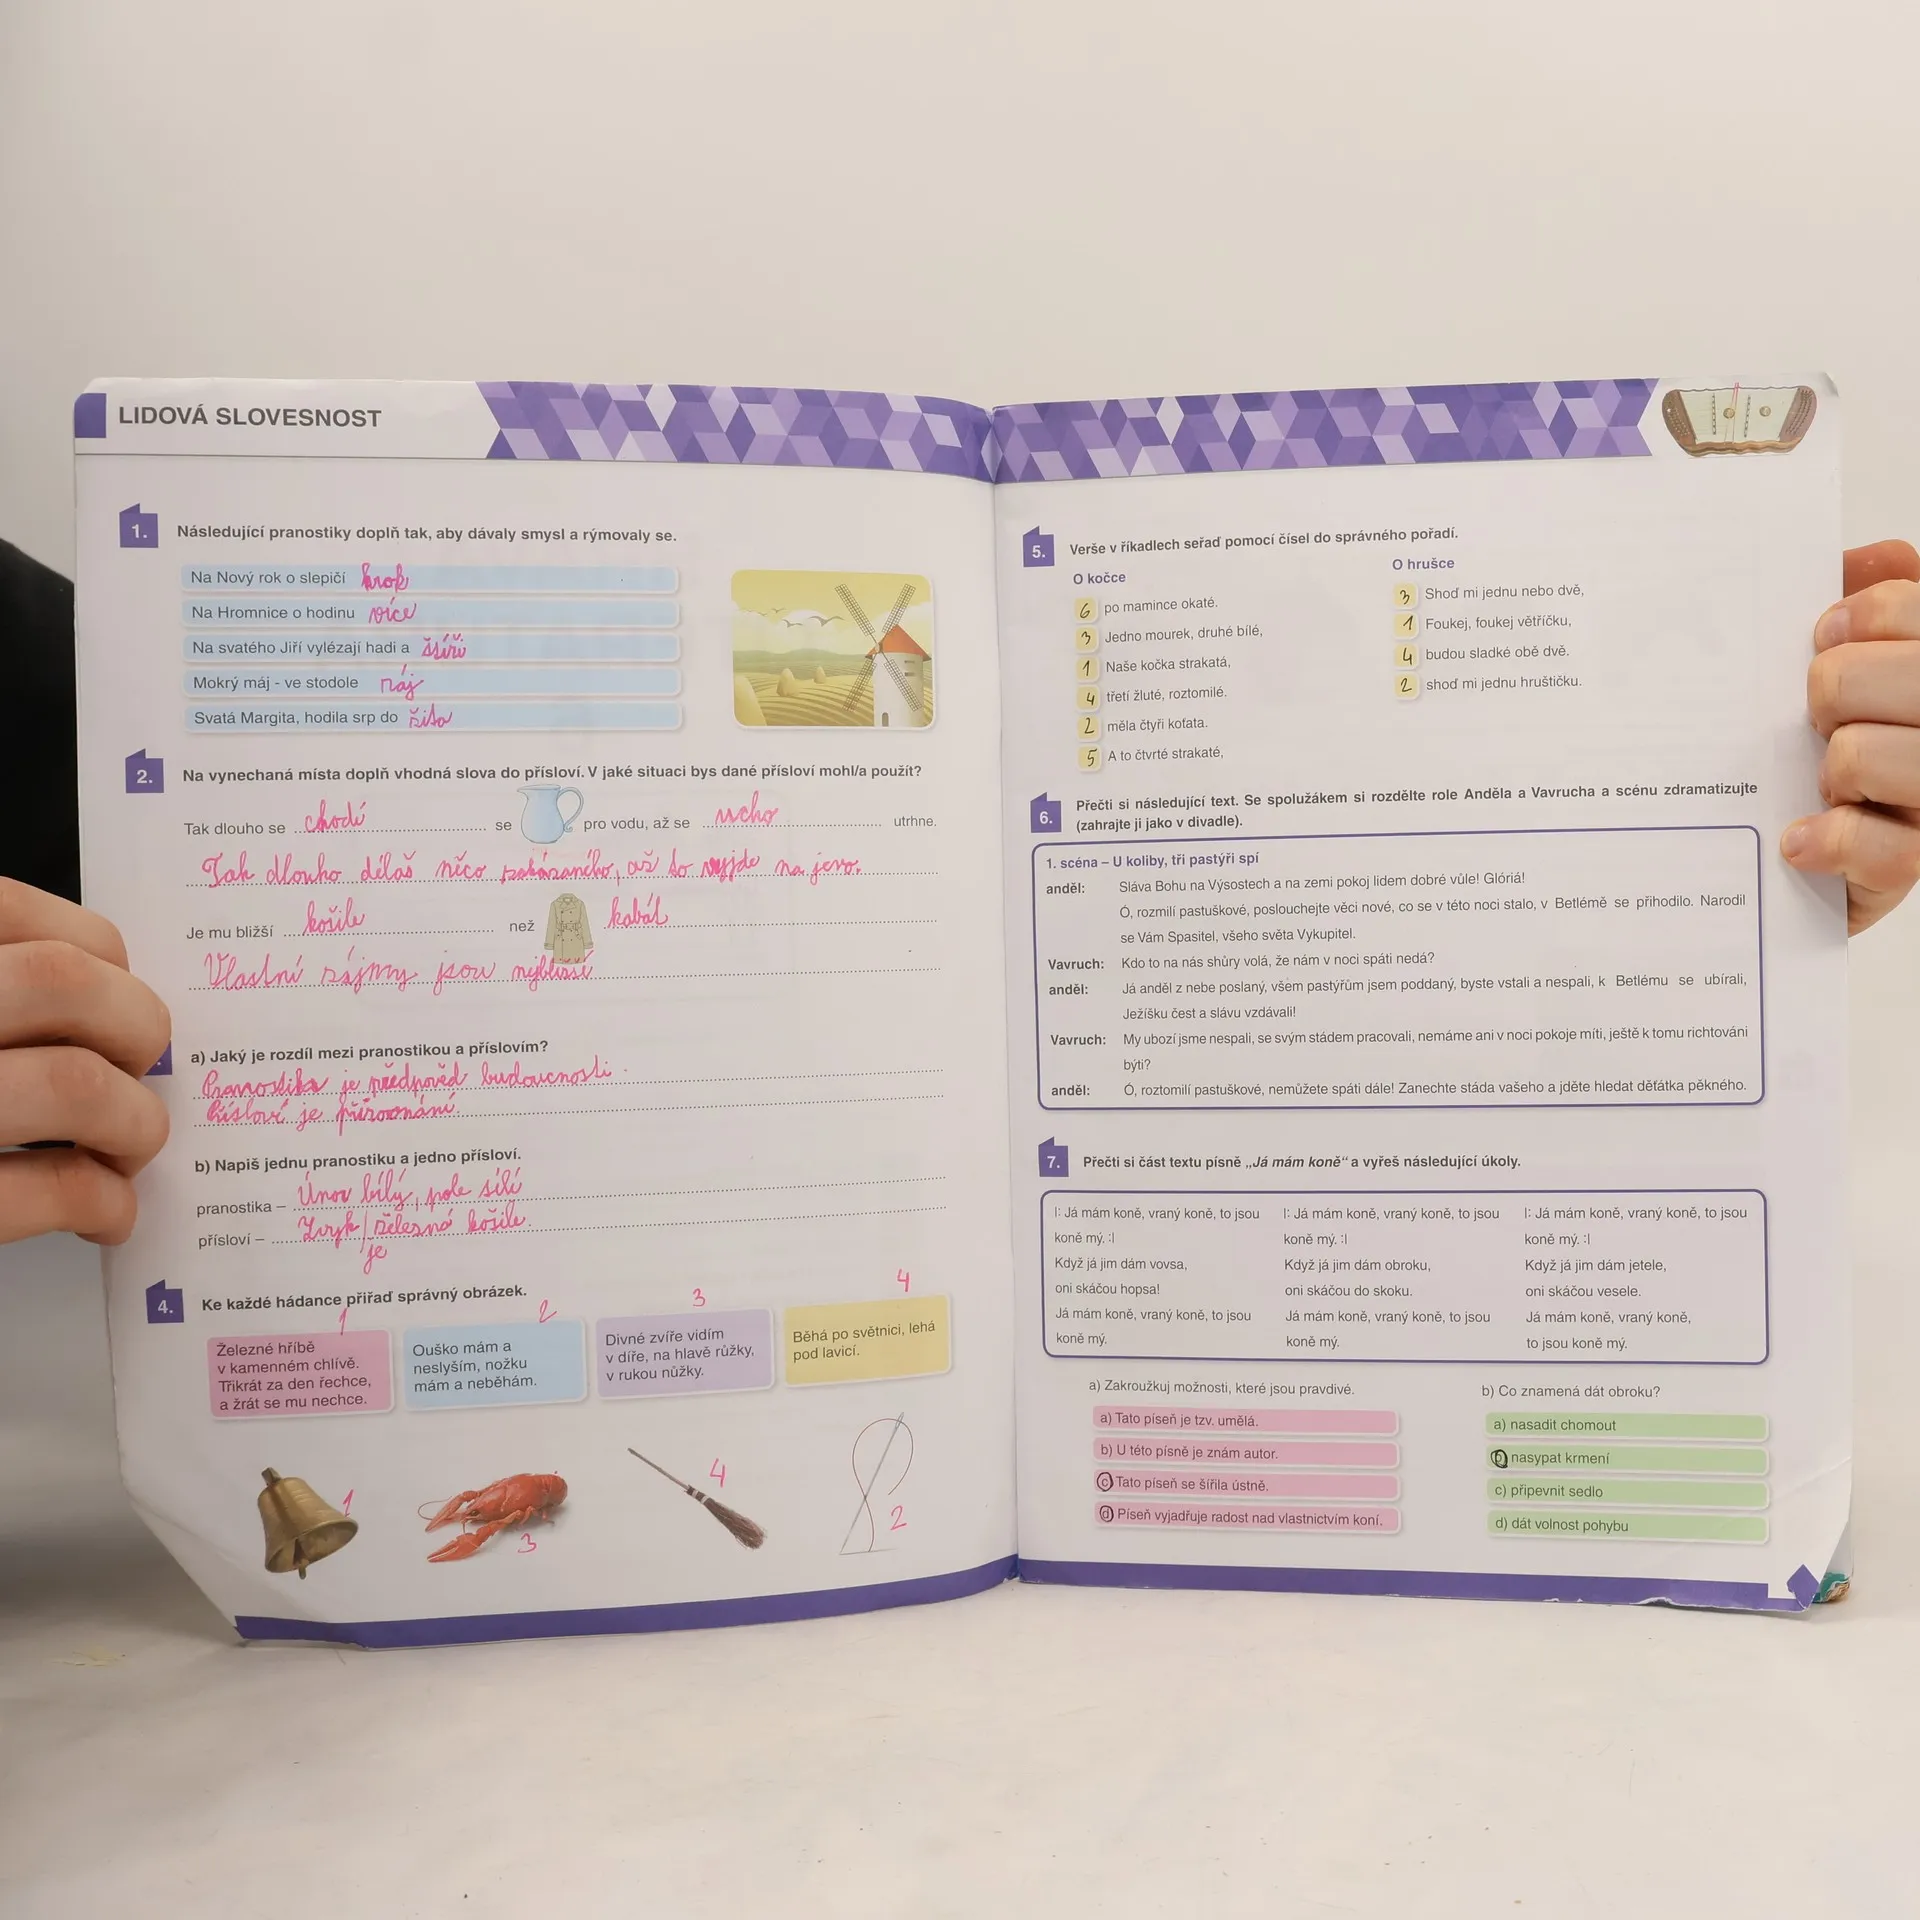 LIDOVÁ SLOVESNOST
1. Následující pranostiky doplň tak, aby dávaly smysl a rýmovaly se.
Na Nový rok o slepičí krok
Na Hromnice o hodinu více
Na svatého Jiří vylézají hadi a štíři
Mokrý máj - ve stodole ráj
Svatá Margita, hodila srp do žita
2. Na vynechaná místa doplň vhodná slova do přísloví. V jaké situaci bys dané přísloví mohl/a použít?
Tak dlouho se chodí se pro vodu, až se ucho utrhne.
Tak dlouho děláš něco zakázaného, až to vyjde na jevo.
Je mu bližší košile než kabát
Vlastní zájmy jsou nejbližší
a) Jaký je rozdíl mezi pranostikou a příslovím?
Pranostika je předpověd budoucnosti.
Přísloví je přirovnání.
b) Napiš jednu pranostiku a jedno přísloví.
pranostika – Únor bílý, pole sílí
přísloví – Zvyk železná košile.
je
4. Ke každé hádance přiřaď správný obrázek.
1 2 3 4
Železné hříbě
v kamenném chlívě.
Třikrát za den řechce,
a žrát se mu nechce.
Ouško mám a
neslyším, nožku
mám a neběhám.
Divné zvíře vidím
v díře, na hlavě růžky,
v rukou nůžky.
Běhá po světnici, lehá
pod lavicí.
1 3 4 2
5. Verše v říkadlech seřaď pomocí čísel do správného pořadí.
O kočce
6 po mamince okaté.
3 Jedno mourek, druhé bílé,
1 Naše kočka strakatá,
4 třetí žluté, roztomilé.
2 měla čtyři koťata.
5 A to čtvrté strakaté,
O hrušce
3 Shoď mi jednu nebo dvě,
1 Foukej, foukej větříčku,
4 budou sladké obě dvě.
2 shoď mi jednu hruštičku.
6. Přečti si následující text. Se spolužákem si rozdělte role Anděla a Vavrucha a scénu zdramatizujte
(zahrajte ji jako v divadle).
1. scéna – U koliby, tři pastýři spí
anděl: Sláva Bohu na Výsostech a na zemi pokoj lidem dobré vůle! Glóriá!
Ó, rozmilí pastuškové, poslouchejte věci nové, co se v této noci stalo, v Betlémě se přihodilo. Narodil
se Vám Spasitel, všeho světa Vykupitel.
Vavruch: Kdo to na nás shůry volá, že nám v noci spáti nedá?
anděl: Já anděl z nebe poslaný, všem pastýřům jsem poddaný, byste vstali a nespali, k Betlému se ubírali,
Ježíšku čest a slávu vzdávali!
Vavruch: My ubozí jsme nespali, se svým stádem pracovali, nemáme ani v noci pokoje míti, ještě k tomu richtováni
býti?
anděl: Ó, roztomilí pastuškové, nemůžete spáti dále! Zanechte stáda vašeho a jděte hledat děťátka pěkného.
7. Přečti si část textu písně „Já mám koně“ a vyřeš následující úkoly.
I: Já mám koně, vraný koně, to jsou
koně mý. :I
Když já jim dám vovsa,
oni skáčou hopsa!
Já mám koně, vraný koně, to jsou
koně mý.
I: Já mám koně, vraný koně, to jsou
koně mý. :I
Když já jim dám obroku,
oni skáčou do skoku.
Já mám koně, vraný koně, to jsou
koně mý.
I: Já mám koně, vraný koně, to jsou
koně mý. :I
Když já jim dám jetele,
oni skáčou vesele.
Já mám koně, vraný koně,
to jsou koně mý.
a) Zakroužkuj možnosti, které jsou pravdivé.
a) Tato píseň je tzv. umělá.
b) U této písně je znám autor.
c) Tato píseň se šířila ústně.
d) Píseň vyjadřuje radost nad vlastnictvím koní.
b) Co znamená dát obroku?
a) nasadit chomout
b) nasypat krmení
c) připevnit sedlo
d) dát volnost pohybu